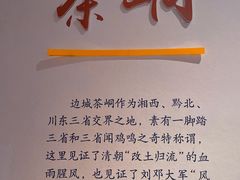 茶峒
边城茶峒作为湘西、黔北、
川东三省交界之地，素有一脚踏
三省和三省闻鸡鸣之奇特称谓，
这里见证了清朝“改土归流”的血
雨腥风，也见证了刘邓大军“风